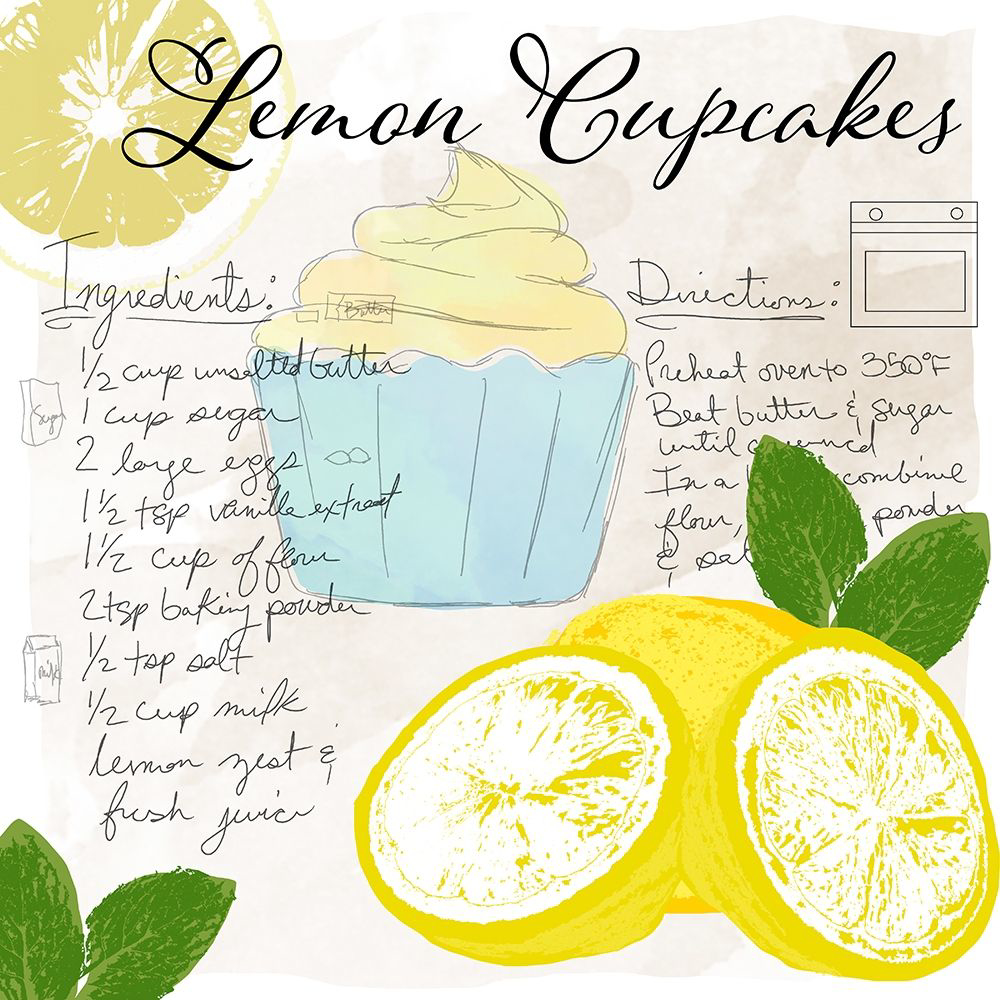 Lemon Cupcakes
Ingredients:
Butter
1/2 cup unsalted butter
1 cup sugar
Sugar
2 large eggs
1 1/2 tsp vanilla extract
1 1/2 cup of flour
2 tsp baking powder
1/2 tsp salt
milk
1/2 cup milk
lemon zest &
fresh juice
Directions:
Preheat oven to 350°F
Beat butter & sugar
until
In a combine
flour, powder
&